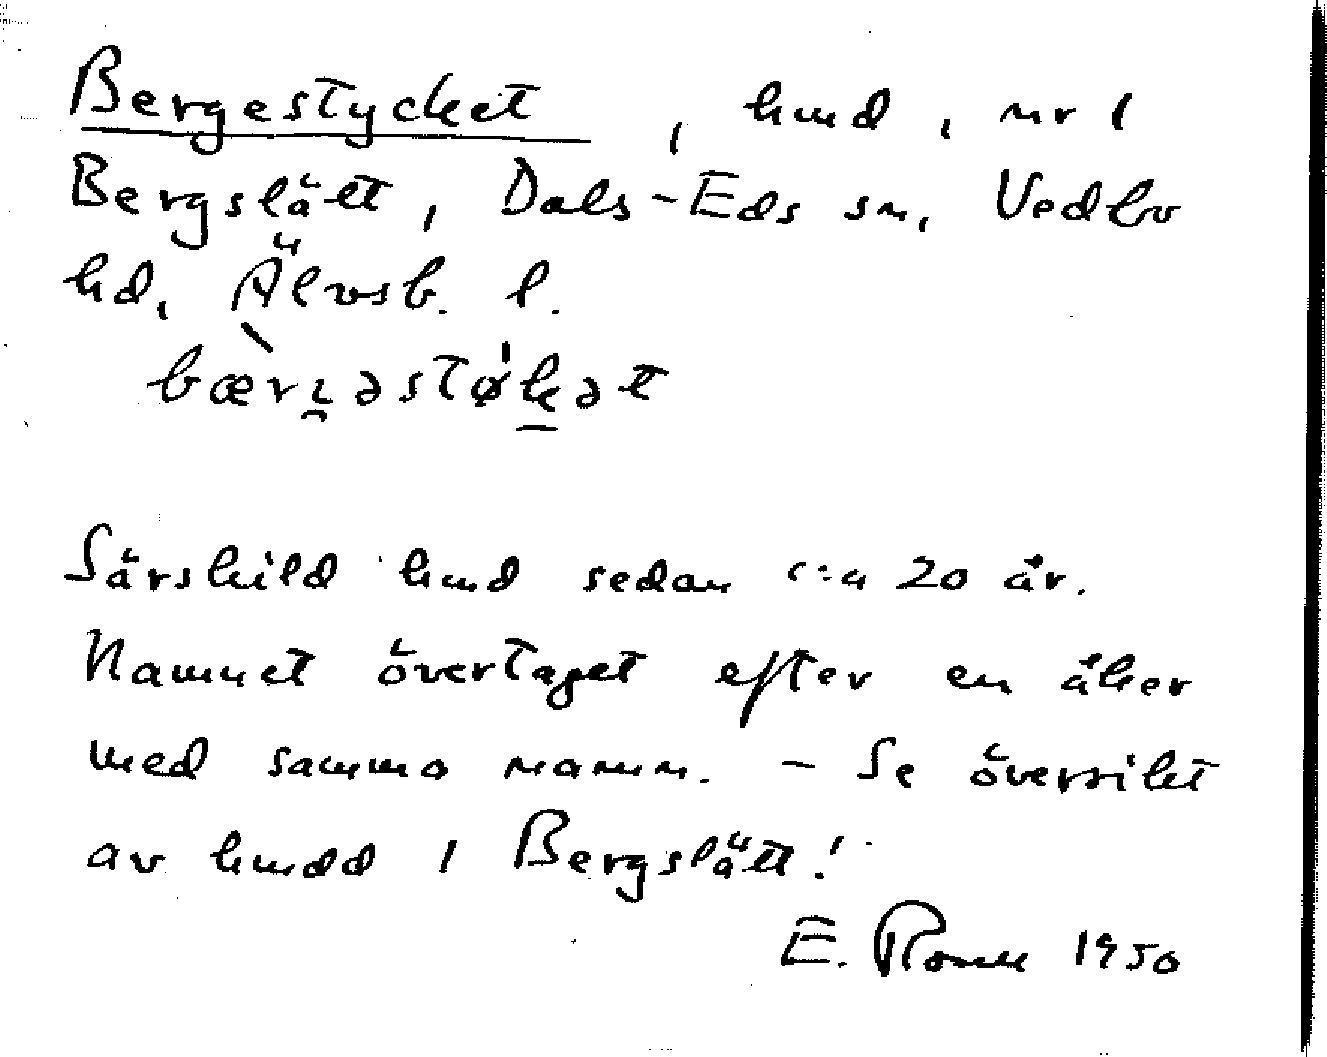 Bergestycket, hmd, nr 1
Bergslätt, Dals-Eds sn, Vedbo
hd, Älvsb. l.
Särskild hmd sedan c:a 20 år.
Namnet övertaget efter en åker
med samma namn. - Se översikt
av hmdd 1 Bergslätt!
E. 1950